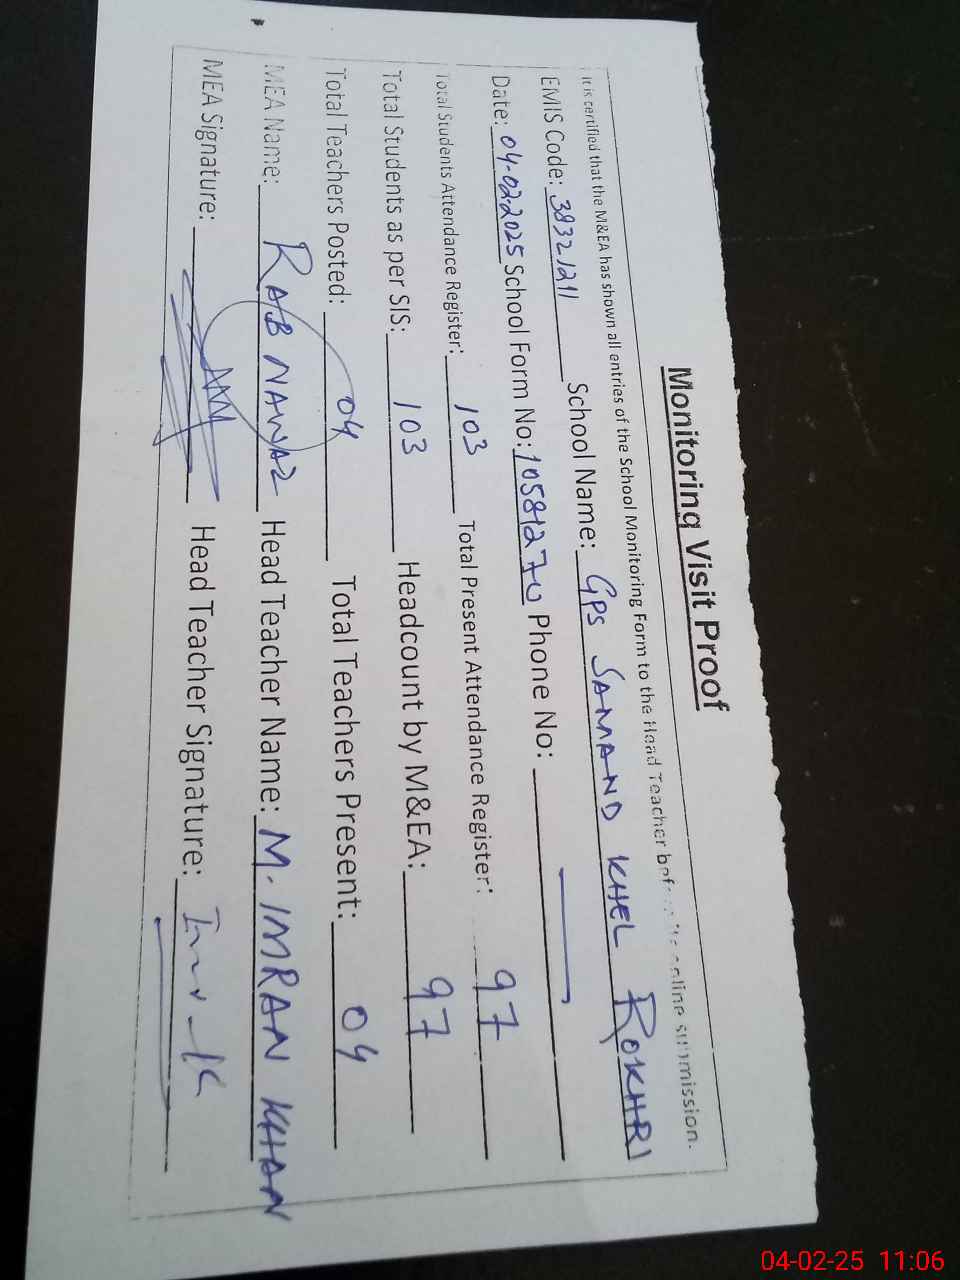 Monitoring Visit Proof
It is certified that the M&EA has shown all entries of the School Monitoring Form to the Head Teacher before its online submission.
EMIS Code: 38321211 School Name: GPS SAMAND KHEL ROKHRI
Date: 04-02-2025 School Form No: 10581270 Phone No:
Total Students Attendance Register: 103 Total Present Attendance Register: 97
Total Students as per SIS: 103 Headcount by M&EA: 97
Total Teachers Posted: 04 Total Teachers Present: 04
MEA Name: RAB NAWAZ Head Teacher Name: M. IMRAN KHAN
MEA Signature: Head Teacher Signature:
04-02-25 11:06